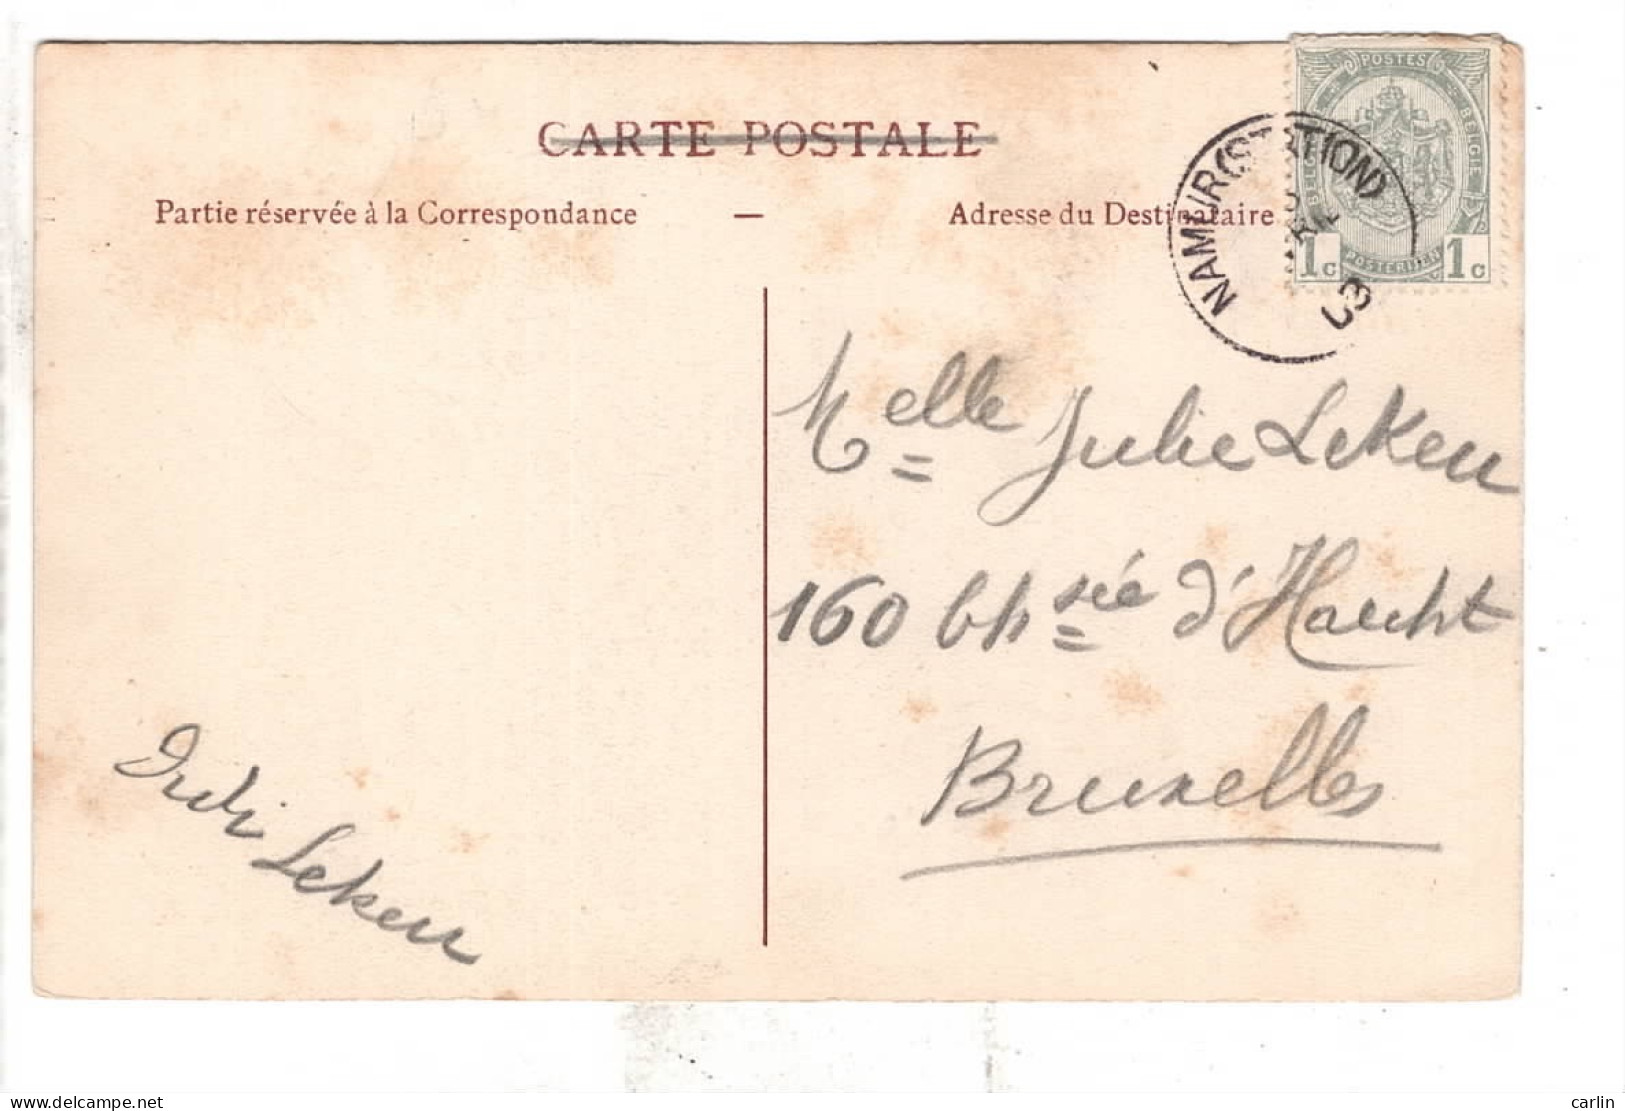 CARTE POSTALE
Partie réservée à la Correspondance — Adresse du Destinataire
POSTES
BELGIQUE BELGIE
POSTERIJEN
1c 1c
NAMUR (STATION)
Melle Julie Lekeu
160 Chsée d'Haecht
Bruxelles
Lekeu
delcampe.net
carlin